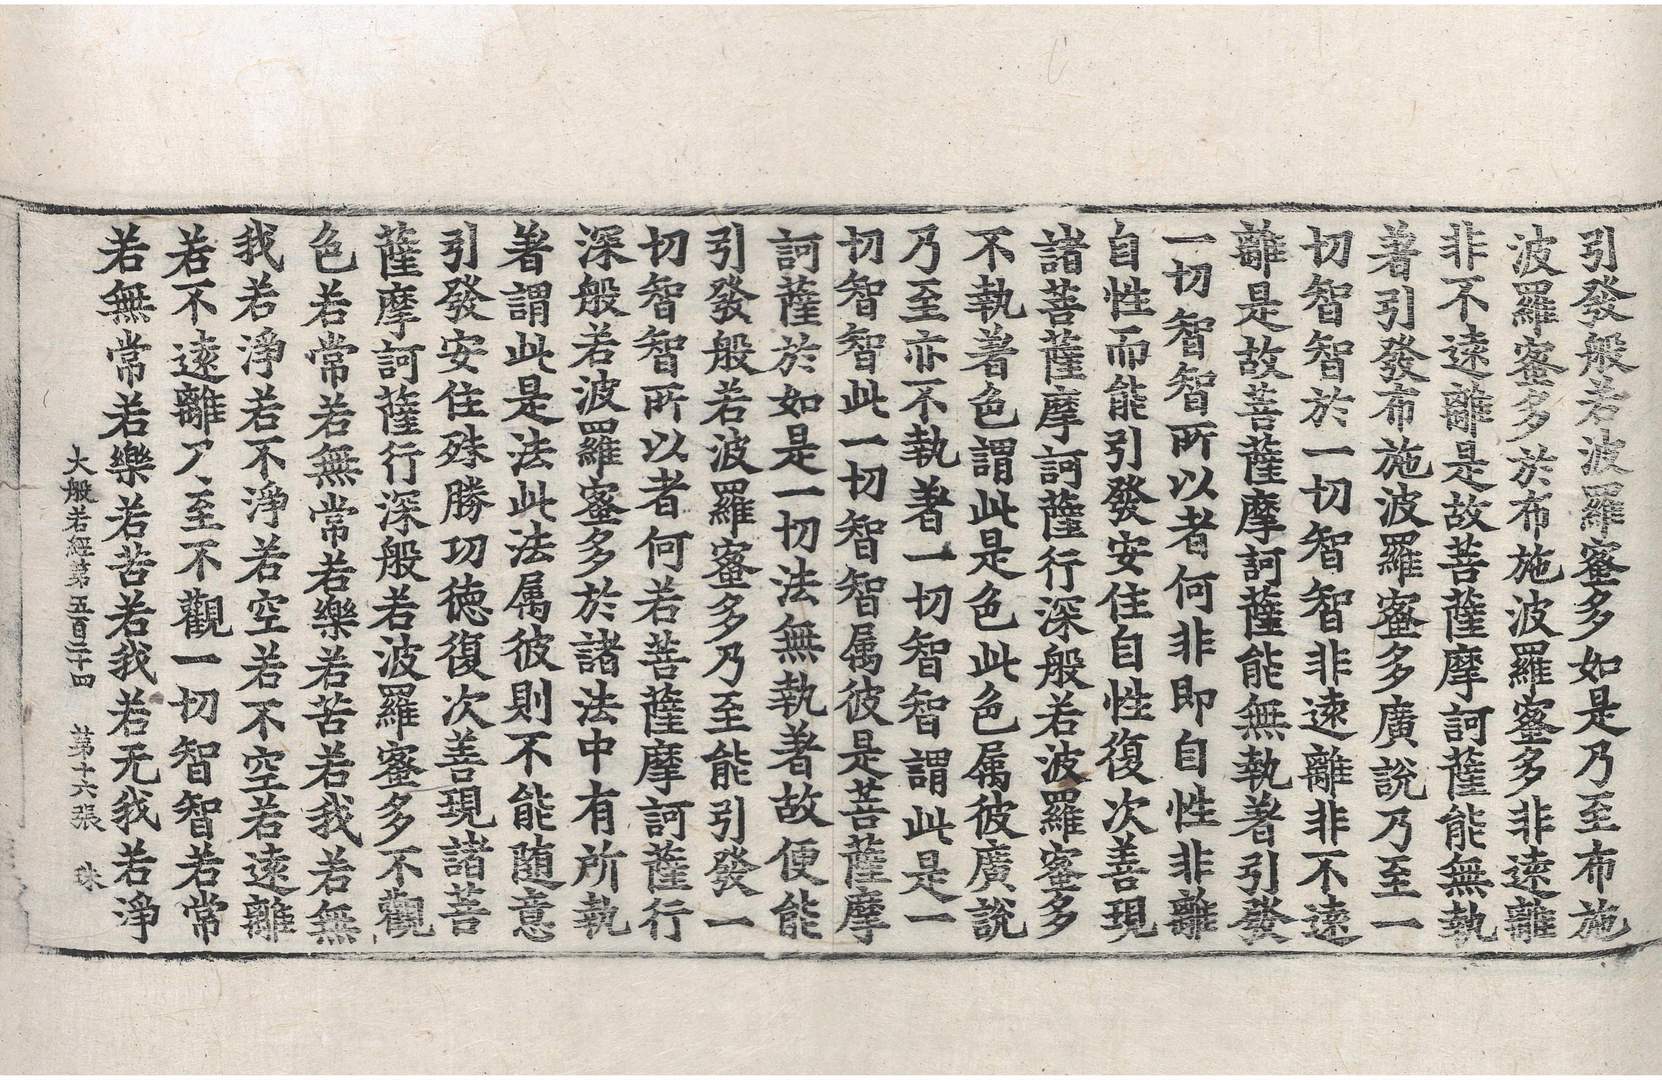 引發般若波羅蜜多如是乃至布施
波羅蜜多於布施波羅蜜多非遠離
非不遠離是故菩薩摩訶薩能無執
著引發布施波羅蜜多廣說乃至一
切智智於一切智智非遠離非不遠
離是故菩薩摩訶薩能無執著引發
一切智智所以者何非即自性非離
自性而能引發安住自性復次善現
諸菩薩摩訶薩行深般若波羅蜜多
不執著色謂此是色此色属彼廣說
乃至亦不執著一切智智謂此是一
切智智此一切智智属彼是菩薩摩
訶薩於如是一切法無執著故便能
引發般若波羅蜜多乃至能引發一
切智智所以者何若菩薩摩訶薩行
深般若波羅蜜多於諸法中有所執
著謂此是法此法属彼則不能随意
引發安住殊勝功德復次善現諸菩
薩摩訶薩行深般若波羅蜜多不觀
色若常若無常若樂若苦若我若無
我若淨若不淨若空若不空若遠離
若不遠離乃至不觀一切智智若常
若無常若樂若苦若我若无我若淨
大般若經第五百二十四 第十六張 珠